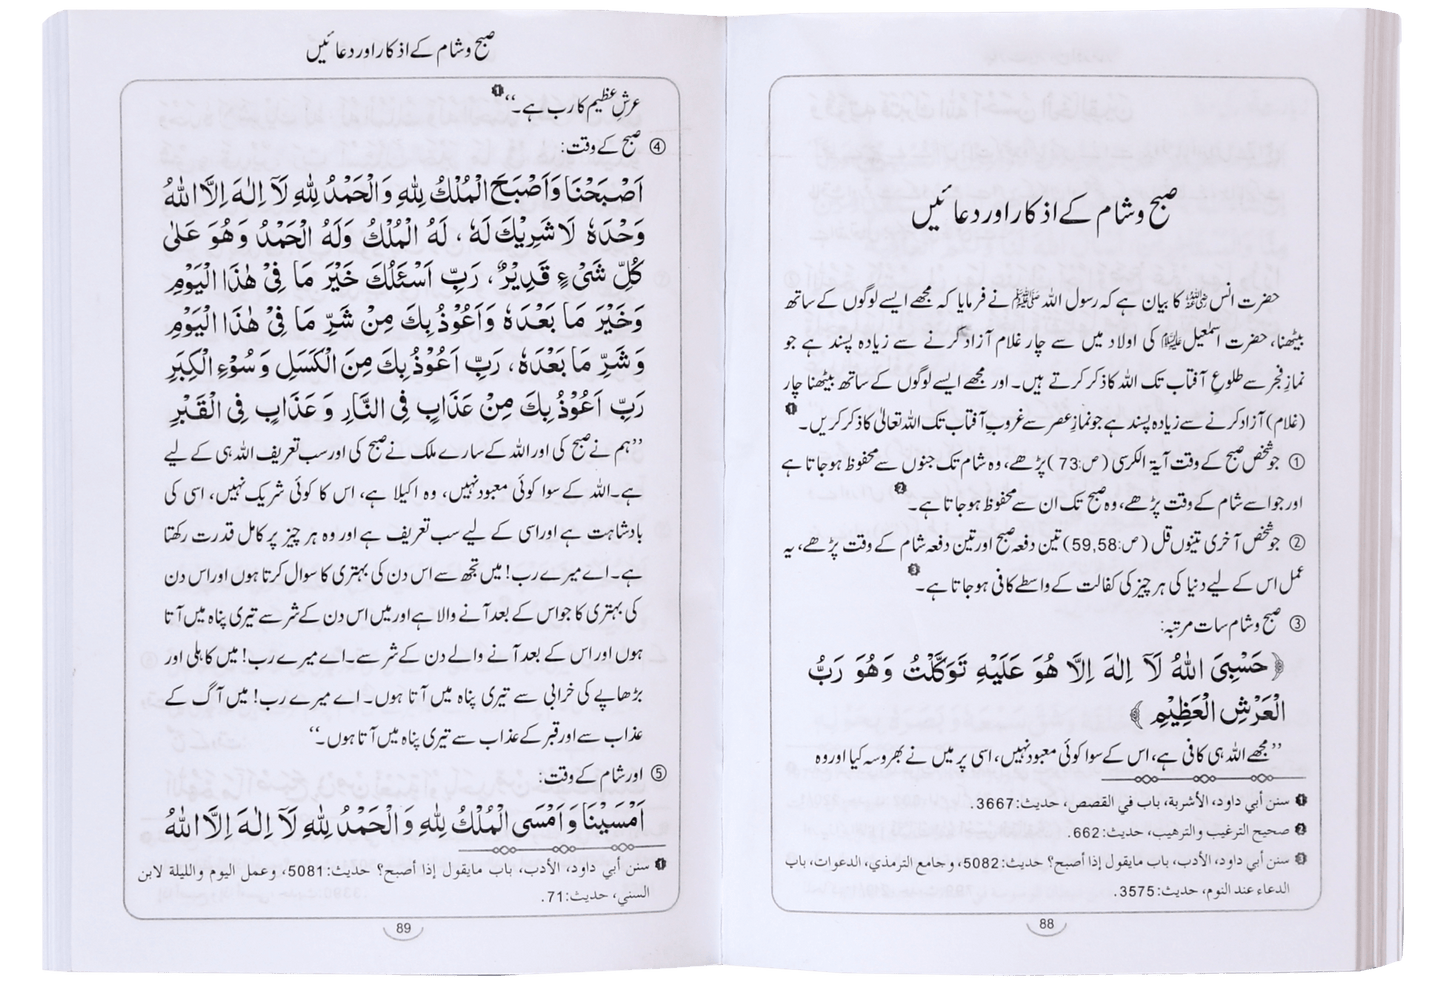 صبح و شام کے اذکار اور دعائیں
حضرت انس رضی اللہ عنہ کا بیان ہے کہ رسول اللہ ﷺ نے فرمایا کہ مجھے ایسے لوگوں کے ساتھ
بیٹھنا، حضرت اسمٰعیل علیہ السلام کی اولاد میں سے چار غلام آزاد کرنے سے زیادہ پسند ہے جو
نمازِ فجر سے طلوعِ آفتاب تک اللہ کا ذکر کرتے ہیں۔ اور مجھے ایسے لوگوں کے ساتھ بیٹھنا چار
(غلام) آزاد کرنے سے زیادہ پسند ہے جو نمازِ عصر سے غروب آفتاب تک اللہ تعالیٰ کا ذکر کریں۔ ❶
① جو شخص صبح کے وقت آیۃ الکرسی (ص:73) پڑھے، وہ شام تک جنوں سے محفوظ ہو جاتا ہے
اور جو اسے شام کے وقت پڑھے، وہ صبح تک ان سے محفوظ ہو جاتا ہے۔ ❷
② جو شخص آخری تینوں قل (ص:59,58) تین دفعہ صبح اور تین دفعہ شام کے وقت پڑھے، یہ
عمل اس کے لیے دنیا کی ہر چیز کی کفالت کے واسطے کافی ہو جاتا ہے۔ ❸
③ صبح و شام سات مرتبہ:
﴿حَسْبِيَ اللّٰهُ لَآ اِلٰهَ اِلَّا هُوَ عَلَيْهِ تَوَكَّلْتُ وَهُوَ رَبُّ
الْعَرْشِ الْعَظِيْمِ﴾
’’مجھے اللہ ہی کافی ہے، اس کے سوا کوئی معبود نہیں، اسی پر میں نے بھروسہ کیا اور وہ
❶ سنن أبي داود، الأشربة، باب في القصص، حديث:3667.
❷ صحيح الترغيب والترهيب، حديث:662.
❸ سنن أبي داود، الأدب، باب مايقول إذا أصبح؟ حديث:5082، وجامع الترمذي، الدعوات، باب
الدعاء عند النوم، حديث:3575.
88
صبح و شام کے اذکار اور دعائیں
عرشِ عظیم کا رب ہے۔‘‘ ❶
④ صبح کے وقت:
اَصْبَحْنَا وَاَصْبَحَ الْمُلْكُ لِلّٰهِ وَالْحَمْدُ لِلّٰهِ لَآ اِلٰهَ اِلَّا اللّٰهُ
وَحْدَهٗ لَا شَرِيْكَ لَهٗ، لَهُ الْمُلْكُ وَلَهُ الْحَمْدُ وَهُوَ عَلٰى
كُلِّ شَيْءٍ قَدِيْرٌ، رَبِّ اَسْئَلُكَ خَيْرَ مَا فِيْ هٰذَا الْيَوْمِ
وَخَيْرَ مَا بَعْدَهٗ وَاَعُوْذُ بِكَ مِنْ شَرِّ مَا فِيْ هٰذَا الْيَوْمِ
وَشَرِّ مَا بَعْدَهٗ، رَبِّ اَعُوْذُ بِكَ مِنَ الْكَسَلِ وَسُوْءِ الْكِبَرِ
رَبِّ اَعُوْذُ بِكَ مِنْ عَذَابٍ فِي النَّارِ وَعَذَابٍ فِي الْقَبْرِ
’’ہم نے صبح کی اور اللہ کے سارے ملک نے صبح کی اور سب تعریف اللہ ہی کے لیے
ہے۔ اللہ کے سوا کوئی معبود نہیں، وہ اکیلا ہے، اس کا کوئی شریک نہیں، اسی کی
بادشاہت ہے اور اسی کے لیے سب تعریف ہے اور وہ ہر چیز پر کامل قدرت رکھتا
ہے۔ اے میرے رب! میں تجھ سے اس دن کی بہتری کا سوال کرتا ہوں اور اس دن
کی بہتری کا جو اس کے بعد آنے والا ہے اور میں اس دن کے شر سے تیری پناہ میں آتا
ہوں اور اس کے بعد آنے والے دن کے شر سے۔ اے میرے رب! میں کاہلی اور
بڑھاپے کی خرابی سے تیری پناہ میں آتا ہوں۔ اے میرے رب! میں آگ کے
عذاب سے اور قبر کے عذاب سے تیری پناہ میں آتا ہوں۔‘‘
⑤ اور شام کے وقت:
اَمْسَيْنَا وَاَمْسَى الْمُلْكُ لِلّٰهِ وَالْحَمْدُ لِلّٰهِ لَا اِلٰهَ اِلَّا اللّٰهُ
❶ سنن أبي داود، الأدب، باب مايقول إذا أصبح؟ حديث:5081، وعمل اليوم والليلة لابن
السني، حديث:71.
89